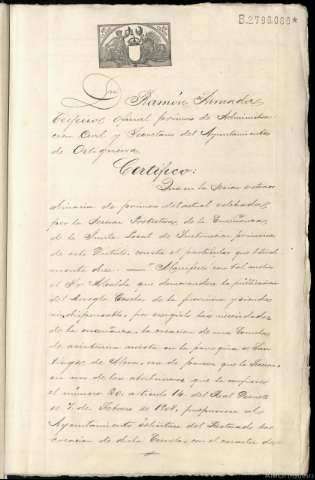 B.2799.086*
Don Ramón Armada
Teijeiro oficial primero de Administra-
ción Civil y Secretario del Ayuntamiento
de Ortigueira.
Certifico:
Que en la Sesión extraor-
dinaria de primero del actual celebrada
por la Sección Protectora de la Enseñanza
de la Junta Local de Instrucción primaria
de este Distrito, consta el particular que literal-
mente dice: Manifestó con tal motivo
el Sr. Alcalde que demorándose la publicación
del Arreglo Escolar de la provincia y siendo
indispensable, por exigirlo las necesidades
de la enseñanza, la creación de una Escuela
de asistencia mixta en la parroquia de San-
tiago de
en uso de las atribuciones que le confiere
el número 20, artículo 14, del Real Decreto
de 7 de Febrero de 1908, propusiera al
Ayuntamiento solicitara del Rectorado la
creación de dicha Escuela, con el carácter de